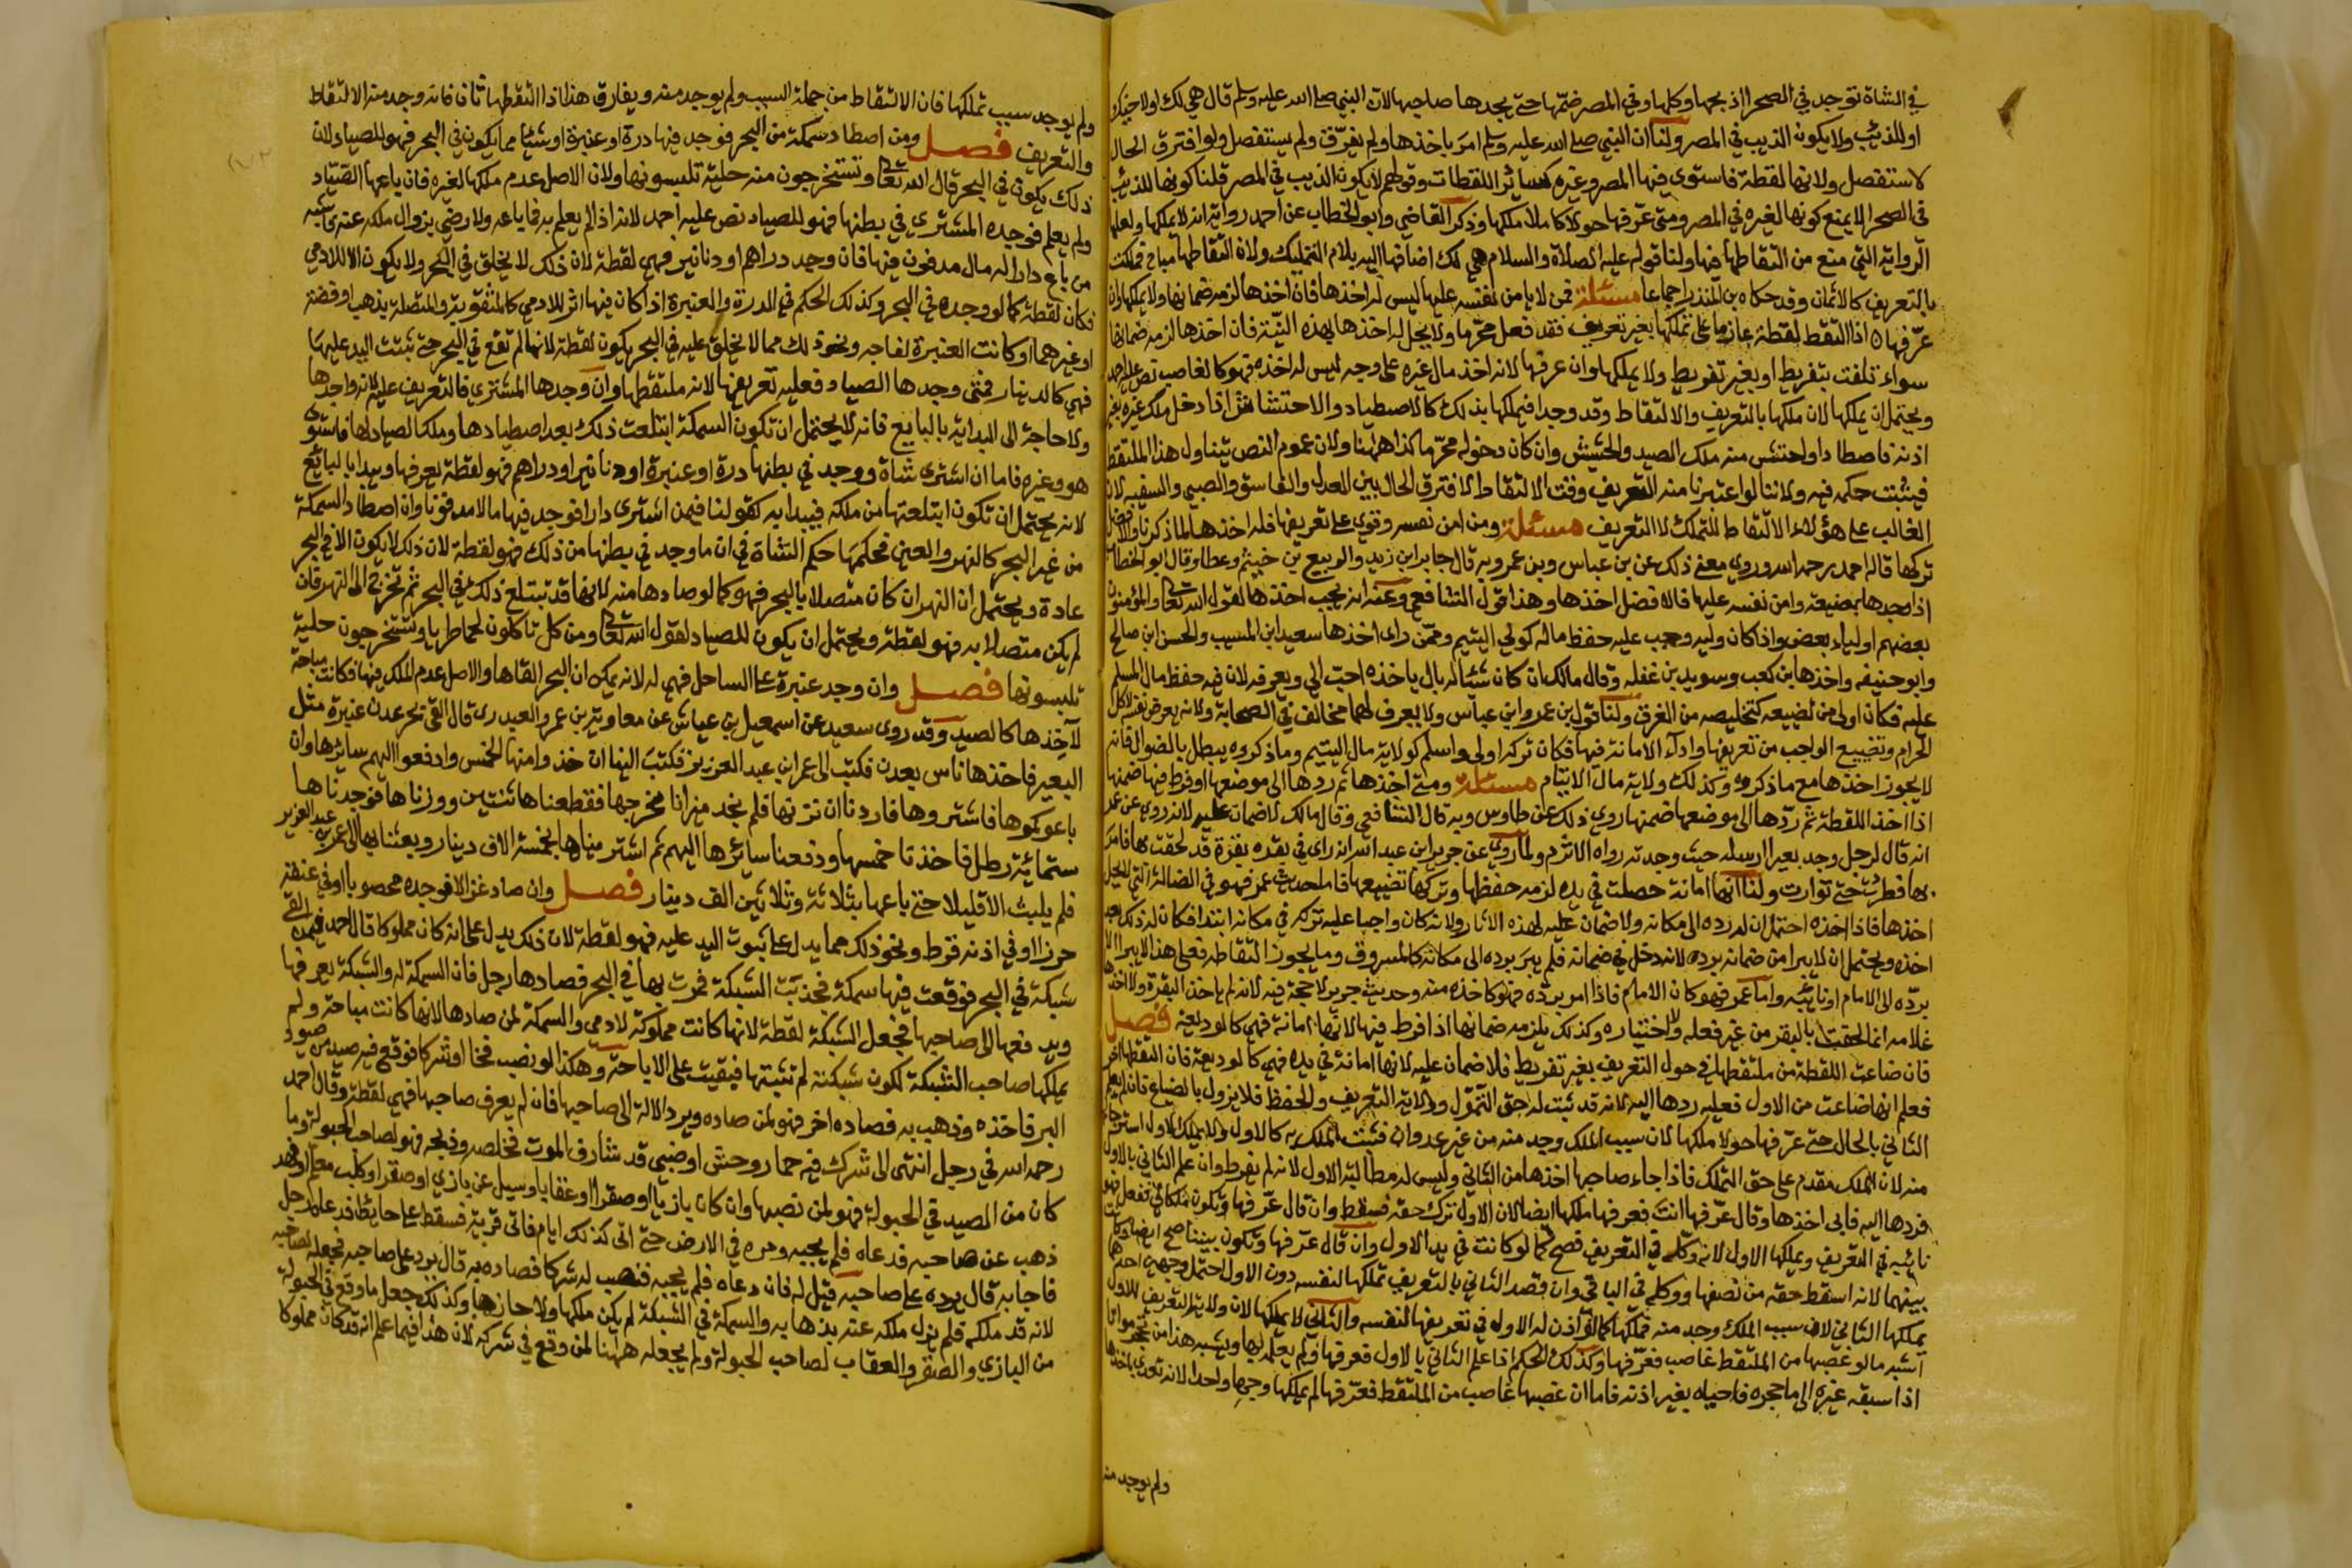 في الشاة توجد في الصحرا اذبحها وكلها وفي المصر ضمها حتى يجدها صاحبها لان النبي صلى الله عليه وسلم قال هي لك او لاخيك
او للذئب ولا يكون الذيب في المصر ولنا ان النبي صلى الله عليه وسلم امر باخذها ولم يفرق ولم يستفصل ولو افترق الحال
لاستفصل ولانها لقطة فاستوى فيها المصر وغيره كسائر اللقطات وقولهم لا يكون الذيب في المصر قلنا كونها للذيب
في الصحرا لا يمنع كونها لغيره في المصر ومتى عرفها حولا كاملا ملكها وذكر القاضي وابو الخطاب عن احمد رواية انه لا يملكها ولعلها
الرواية التي منع من التقاطها فيها ولنا قوله عليه الصلاة والسلام هي لك اضافها اليه بلام التمليك ولان التقاطها مباح فملكت
بالتعريف كالاثمان وقد حكاه بن المنذر اجماعا مسئلة فمن لا يامن نفسه عليها ليس له اخذها فان اخذها لزمه ضمانها ولا يملكها وان
عرفها اذا التقط لقطة عازما على تملكها بغير تعريف فقد فعل محرما ولا يحل له اخذها بهذه النية فان اخذها لزمه ضمانها
سواء تلفت بتفريط او بغير تفريط ولا يملكها وان عرفها لانه اخذ مال غيره على وجه ليس له اخذه فهو كالغاصب نص عليه احمد
ويحتمل ان يملكها لان ملكها بالتعريف والالتقاط وقد وجدا فيملكها بذلك كالاصطياد والاحتشاش اذا دخل ملك غيره بغير
اذنه فاصطاد او احتش منه ملك الصيد والحشيش وان كان دخوله محرما كذا ههنا ولان عموم النص يتناول هذا الملتقط
فيثبت حكمه فيه ولاننا لو اعتبرنا منه التعريف وقت الالتقاط لافترق الحال بين العدل والفاسق والصبي والسفيه لان
الغالب على هؤلاء الالتقاط للتملك لا التعريف مسئلة ومن امن نفسه وقوي على تعريفها فله اخذها لما ذكرنا والافضل
تركها قاله احمد رحمه الله وروي معنى ذلك عن بن عباس وبن عمر وبه قال جابر ابن زيد والربيع بن خيثم وعطا وقال ابو الخطاب
اذا وجدها بمضيعة وامن نفسه عليها فالافضل اخذها وهذا قول الشافعي وعنه انه يجب اخذها لقول الله تعالى والمؤمنون
بعضهم اولياء بعض واذا كان وليه وجب عليه حفظ ماله كولي اليتيم وممن راى اخذها سعيد ابن المسيب والحسن ابن صالح
وابو حنيفه واخذها بن كعب وسويد بن غفله وقال مالك ان كان شيئا له بال ياخذه احب الي ويعرفه لان فيه حفظ مال المسلم
عليه فكان اولى من تضييعه كتخليصه من الغرق ولنا قول بن عمر وابن عباس ولا يعرف لهما مخالف في الصحابة ولانه يعرض نفسه لاكل
الحرام وتضييع الواجب من تعريفها واداء الامانة فيها فكان تركه اولى واسلم كولاية مال اليتيم وما ذكروه يبطل بالضوال فانه
لا يجوز اخذها مع ما ذكروه وكذلك ولاية مال الايتام مسئلة ومتى اخذها ثم ردها الى موضعها او فرط فيها ضمنها
اذا اخذ اللقطة ثم ردها الى موضعها ضمنها روي ذلك عن طاوس وبه قال الشافعي وقال مالك لا ضمان عليه لانه روي عن عمر
انه قال لرجل وجد بعيرا ارسله حيث وجدته رواه الاثرم ولما روي عن جرير ابن عبد الله انه راى في بقره بقرة قد لحقت بها فامر
بها فطردت حتى توارت ولنا انها امانة حصلت في يده لزمه حفظها وتركها تضييعها فاما حديث عمر فهو في الضالة التي لا يحل
اخذها فاذا اخذه احتمل ان له رده الى مكانه ولا ضمان عليه لهذه الاثار ولانه كان واجبا عليه تركه في مكانه ابتدا فكان له ذلك بعد
اخذه ويحتمل ان لا يبرا من ضمانه برده لانه دخل في ضمانه فلم يبر برده الى مكانه كالمسروق وما يجوز التقاطه فعلى هذا لا يبرا الا
برده الى الامام او نائبه واما عمر فهو كان الامام فاذا امر برده فهو كاخذه منه وحديث جرير لا حجة فيه لانه لم ياخذ البقرة ولا اخذها
غلامه انما لحقت بالبقر من غير فعله ولا اختياره وكذلك يلزمه ضمانها اذا فرط فيها لانها امانة فهي كالوديعة فصل
فان ضاعت اللقطة من ملتقطها في حول التعريف بغير تفريط فلا ضمان عليه لانها امانة في يده فهي كالوديعة فان التقطها اخر
فعلم انها ضاعت من الاول فعليه ردها اليه لانه قد ثبت له حق التمول وولاية التعريف والحفظ فلا يزول بالضياع فان لم يعلم
الثاني بالحال حتى عرفها حولا ملكها لان سبب الملك وجد منه من غير عدوان فثبت الملك به كالاول ولا يملك الاول انتزاعها
منه لان الملك مقدم على حق التملك فاذا جاء صاحبها اخذها من الثاني وليس له مطالبة الاول لانه لم يفرط وان علم الثاني بالاول
فردها اليه فابى اخذها وقال عرفها انت فعرفها ملكها ايضا لان الاول ترك حقه فسقط وان قال عرفها وتكون ملكا لي ففعل فهو
نائبه في التعريف ويملكها الاول لانه وكله في التعريف فصح كما لو كانت في يد الاول وان قال عرفها وتكون بيننا صح ايضا وكانت
بينهما لانه اسقط حقه من نصفها ووكله في الباقي وان قصد الثاني بالتعريف تملكها لنفسه دون الاول احتمل وجهين احدهما
يملكها الثاني لان سبب الملك وجد منه فملكها كما لو اذن له الاول في تعريفها لنفسه والثاني لا يملكها لان ولاية التعريف للاول
اشبه ما لو غصبها من الملتقط غاصب فعرفها وكذلك الحكم اذا علم الثاني بالاول فعرفها ولم يعلمه بها ويشبه هذا من تحجر مواتا
اذا سبقه غيره الى ما حجره فاحياه بغير اذنه فاما ان غصبها غاصب من الملتقط فعرفها لم يملكها وجها واحدا لانه تعدى باخذها
ولم يوجد منه
ولم يوجد سبب تملكها فان الالتقاط من جملة السبب ولم يوجد منه ويفارق هذا اذا التقطها ثان فانه وجد منه الالتقاط
والتعريف فصل ومن اصطاد سمكة من البحر فوجد فيها درة او عنبرة او شيئا مما يكون في البحر فهو للصياد لان
ذلك يكون في البحر قال الله تعالى وتستخرجون منه حلية تلبسونها ولان الاصل عدم ملكها لغيره فان باعها الصياد
ولم يعلم فوجده المشتري في بطنها فهو للصياد نص عليه احمد لانه اذا لم يعلم به فما باعه ولا رضي بزوال ملكه عنه فاشبه
من باع دارا له مال مدفون فيها فان وجد دراهم او دنانير فهي لقطة لان ذلك لا يخلق في البحر ولا يكون الا للادمي
فكان لقطة كما لو وجده في البحر وكذلك الحكم في الدرة والعنبرة اذا كان فيها اثر للادمي كالمثقوبة والمتصلة بذهب او فضة
او غيرهما او كانت العنبرة تفاحه ونحو ذلك مما لا يخلق عليه في البحر يكون لقطة لانها لم تقع في البحر حتى ثبتت اليد عليها
فهي كالدينار فمتى وجدها الصياد فعليه تعريفها لانه ملتقطها وان وجدها المشتري فالتعريف عليه لانه واجدها
ولا حاجة الى البداية بالبايع فانه لا يحتمل ان تكون السمكة ابتلعت ذلك بعد اصطيادها وملك الصياد لها فاستوى
هو وغيره فاما ان اشترى شاة ووجد في بطنها درة او عنبرة او دنانير او دراهم فهو لقطة يعرفها ويبدا بالبائع
لانه يحتمل ان تكون ابتلعتها من ملكه فيبدا به كقولنا فيمن اشترى دارا فوجد فيها مالا مدفونا وان اصطاد السمكة
من غير البحر كالنهر والعين فحكمها حكم الشاة في ان ما وجد في بطنها من ذلك فهو لقطة لان ذلك لا يكون الا في البحر
عادة ويحتمل ان النهر ان كان متصلا بالبحر فهو كما لو صادها منه لانها قد تبتلع ذلك في البحر ثم تخرج الى النهر فان
لم يكن متصلا به فهو لقطة ويحتمل ان يكون للصياد لقول الله تعالى ومن كل تاكلون لحما طريا وتستخرجون حلية
تلبسونها فصل وان وجد عنبرة على الساحل فهي له لانه يمكن ان البحر القاها والاصل عدم الملك فيها فكانت مباحة
لآخذها كالصيد وقد روى سعيد عن اسمعيل بن عياش عن معاوية بن عمرو العبدري قال القى بحر عدن عنبرة مثل
البعير فاخذها ناس بعدن فكتب الى عمر ابن عبد العزيز فكتب الينا ان خذوا منها الخمس وادفعوا اليهم سائرها وان
باعوكموها فاشتروها فاردنا ان نزنها فلم نجد ميزانا يخرجها فقطعناها ثنتين ووزناها فوجدناها
ستمائة رطل فاخذنا خمسها ودفعنا سائرها اليهم ثم اشتريناها بخمسة الاف دينار وبعثنا بها الى عمر بن عبد العزيز
فلم يلبث الا قليلا حتى باعها بثلاثة وثلاثين الف دينار فصل وان صاد غزالا فوجده مخضوبا او في عنقه
حرزا او في اذنه قرط ونحو ذلك مما يدل على ثبوت اليد عليه فهو لقطة لان ذلك يدل على انه كان مملوكا قال احمد فيمن القى
شبكة في البحر فوقعت فيها سمكة فجذبت الشبكة فمرت بها في البحر فصادها رجل فان السمكة له والشبكة يعرفها
ويدفعها الى صاحبها فجعل الشبكة لقطة لانها كانت مملوكة لادمي والسمكة لمن صادها لانها كانت مباحة ولم
يملكها صاحب الشبكة لكون شبكته لم تثبتها فبقيت على الاباحة وهكذا لو نصب فخا او شركا فوقع فيه صيد من صيود
البر فاخذه وذهب به فصاده اخر فهو لمن صاده ويرد الالة الى صاحبها فان لم يعرف صاحبها فهي لقطة وقال احمد
رحمه الله في رجل انتهى الى شرك فيه حمار وحش او ضبي قد شارف الموت فخلصه وذبحه فهو لصاحب الحبولة وما
كان من الصيد في الحبولة فهو لمن نصبها وان كان بازيا او صقرا او عقابا وسيل عن بازي او صقر او كلب معلم او فهد
ذهب عن صاحبه فدعاه فلم يجبه ومره في الارض حتى اتى كذلك ايام فاتى قرية فسقط على حايط فدعاه رجل
فاجابه قال يرده على صاحبه قيل له فان دعاه فلم يجبه فنصب له شركا فصاده به قال يرد على صاحبه فجعله لصاحبه
لانه قد ملكه فلم يزل ملكه عنه بذهابه والسمكة في الشبكة لم يكن ملكها ولا حازها وكذلك جعل ما وقع في الحبولة
من البازي والصقر والعقاب لصاحب الحبولة ولم يجعله ههنا لمن وقع في شركه لان هذا فيما علم انه قد كان مملوكا